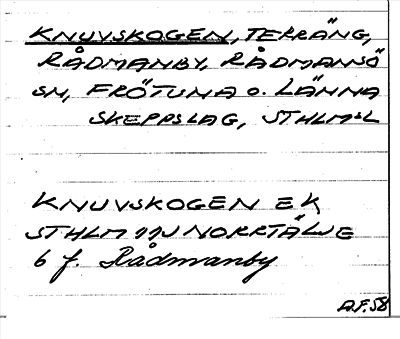 KNUVSKOGEN, TERRÄNG,
RÅDMANBY, RÅDMANSÖ
SN, FRÖTUNA O. LÄNNA
SKEPPSLAG, STHLMSL
KNUVSKOGEN EK
STHLM 11J NORRTÄLJE
6 f. Rådmanby
A.F. 58